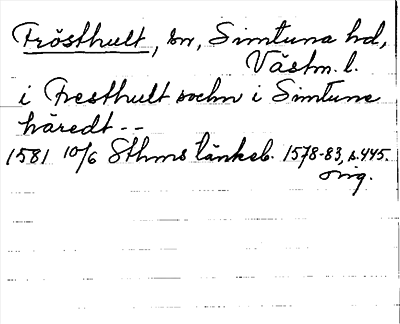 Frösthult, sn, Simtuna hd,
Västm. l.
i Fresthult sochn i Simtune
häredt --
1581 10/6 Sthms tänkeb. 1578-83, s. 445.
orig.